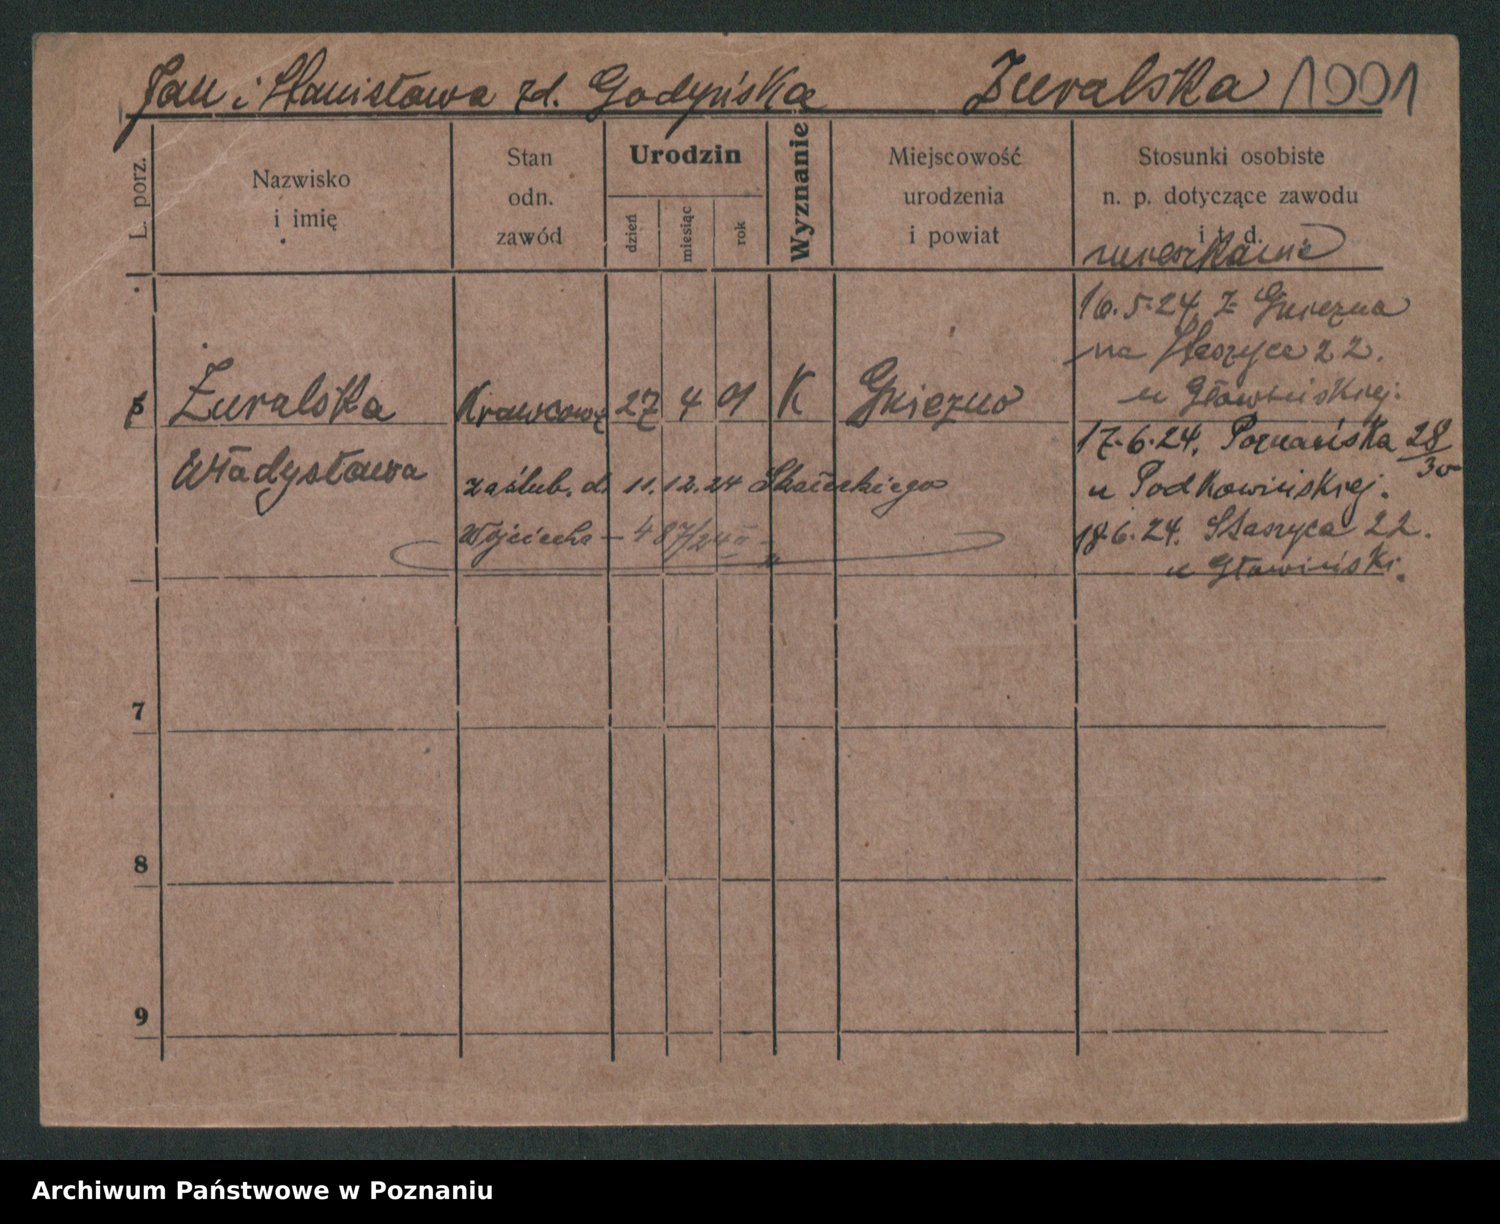 Jan i Stanisława zd. Godyńska Żuralska 1901
L. porz.
Nazwisko
i imię
Stan
odn.
zawód
Urodzin
dzień
miesiąc
rok
Wyznanie
Miejscowość
urodzenia
i powiat
Stosunki osobiste
n. p. dotyczące zawodu
i t. d.
mieszkanie
16.5.24 z Gniezna
na Staszyca 22.
u Głowińskiej.
Żuralska Krawcowa 27 4 01 K Gniezno
17.6.24. Poznańska 28/30
Władysława
u Podkowińskiej.
zaślub. d. 11.12.24
Wojciecha – 487/24 II –
18.6.24. Staszyca 22.
u Głowiński.
7
8
9
Archiwum Państwowe w Poznaniu